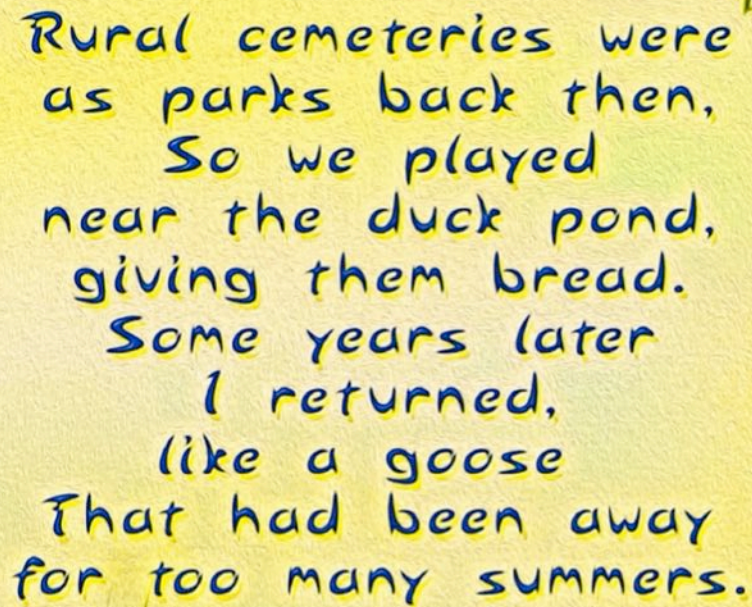 Rural cemeteries were
as parks back then,
So we played
near the duck pond,
giving them bread.
Some years later
I returned,
like a goose
That had been away
for too many summers.